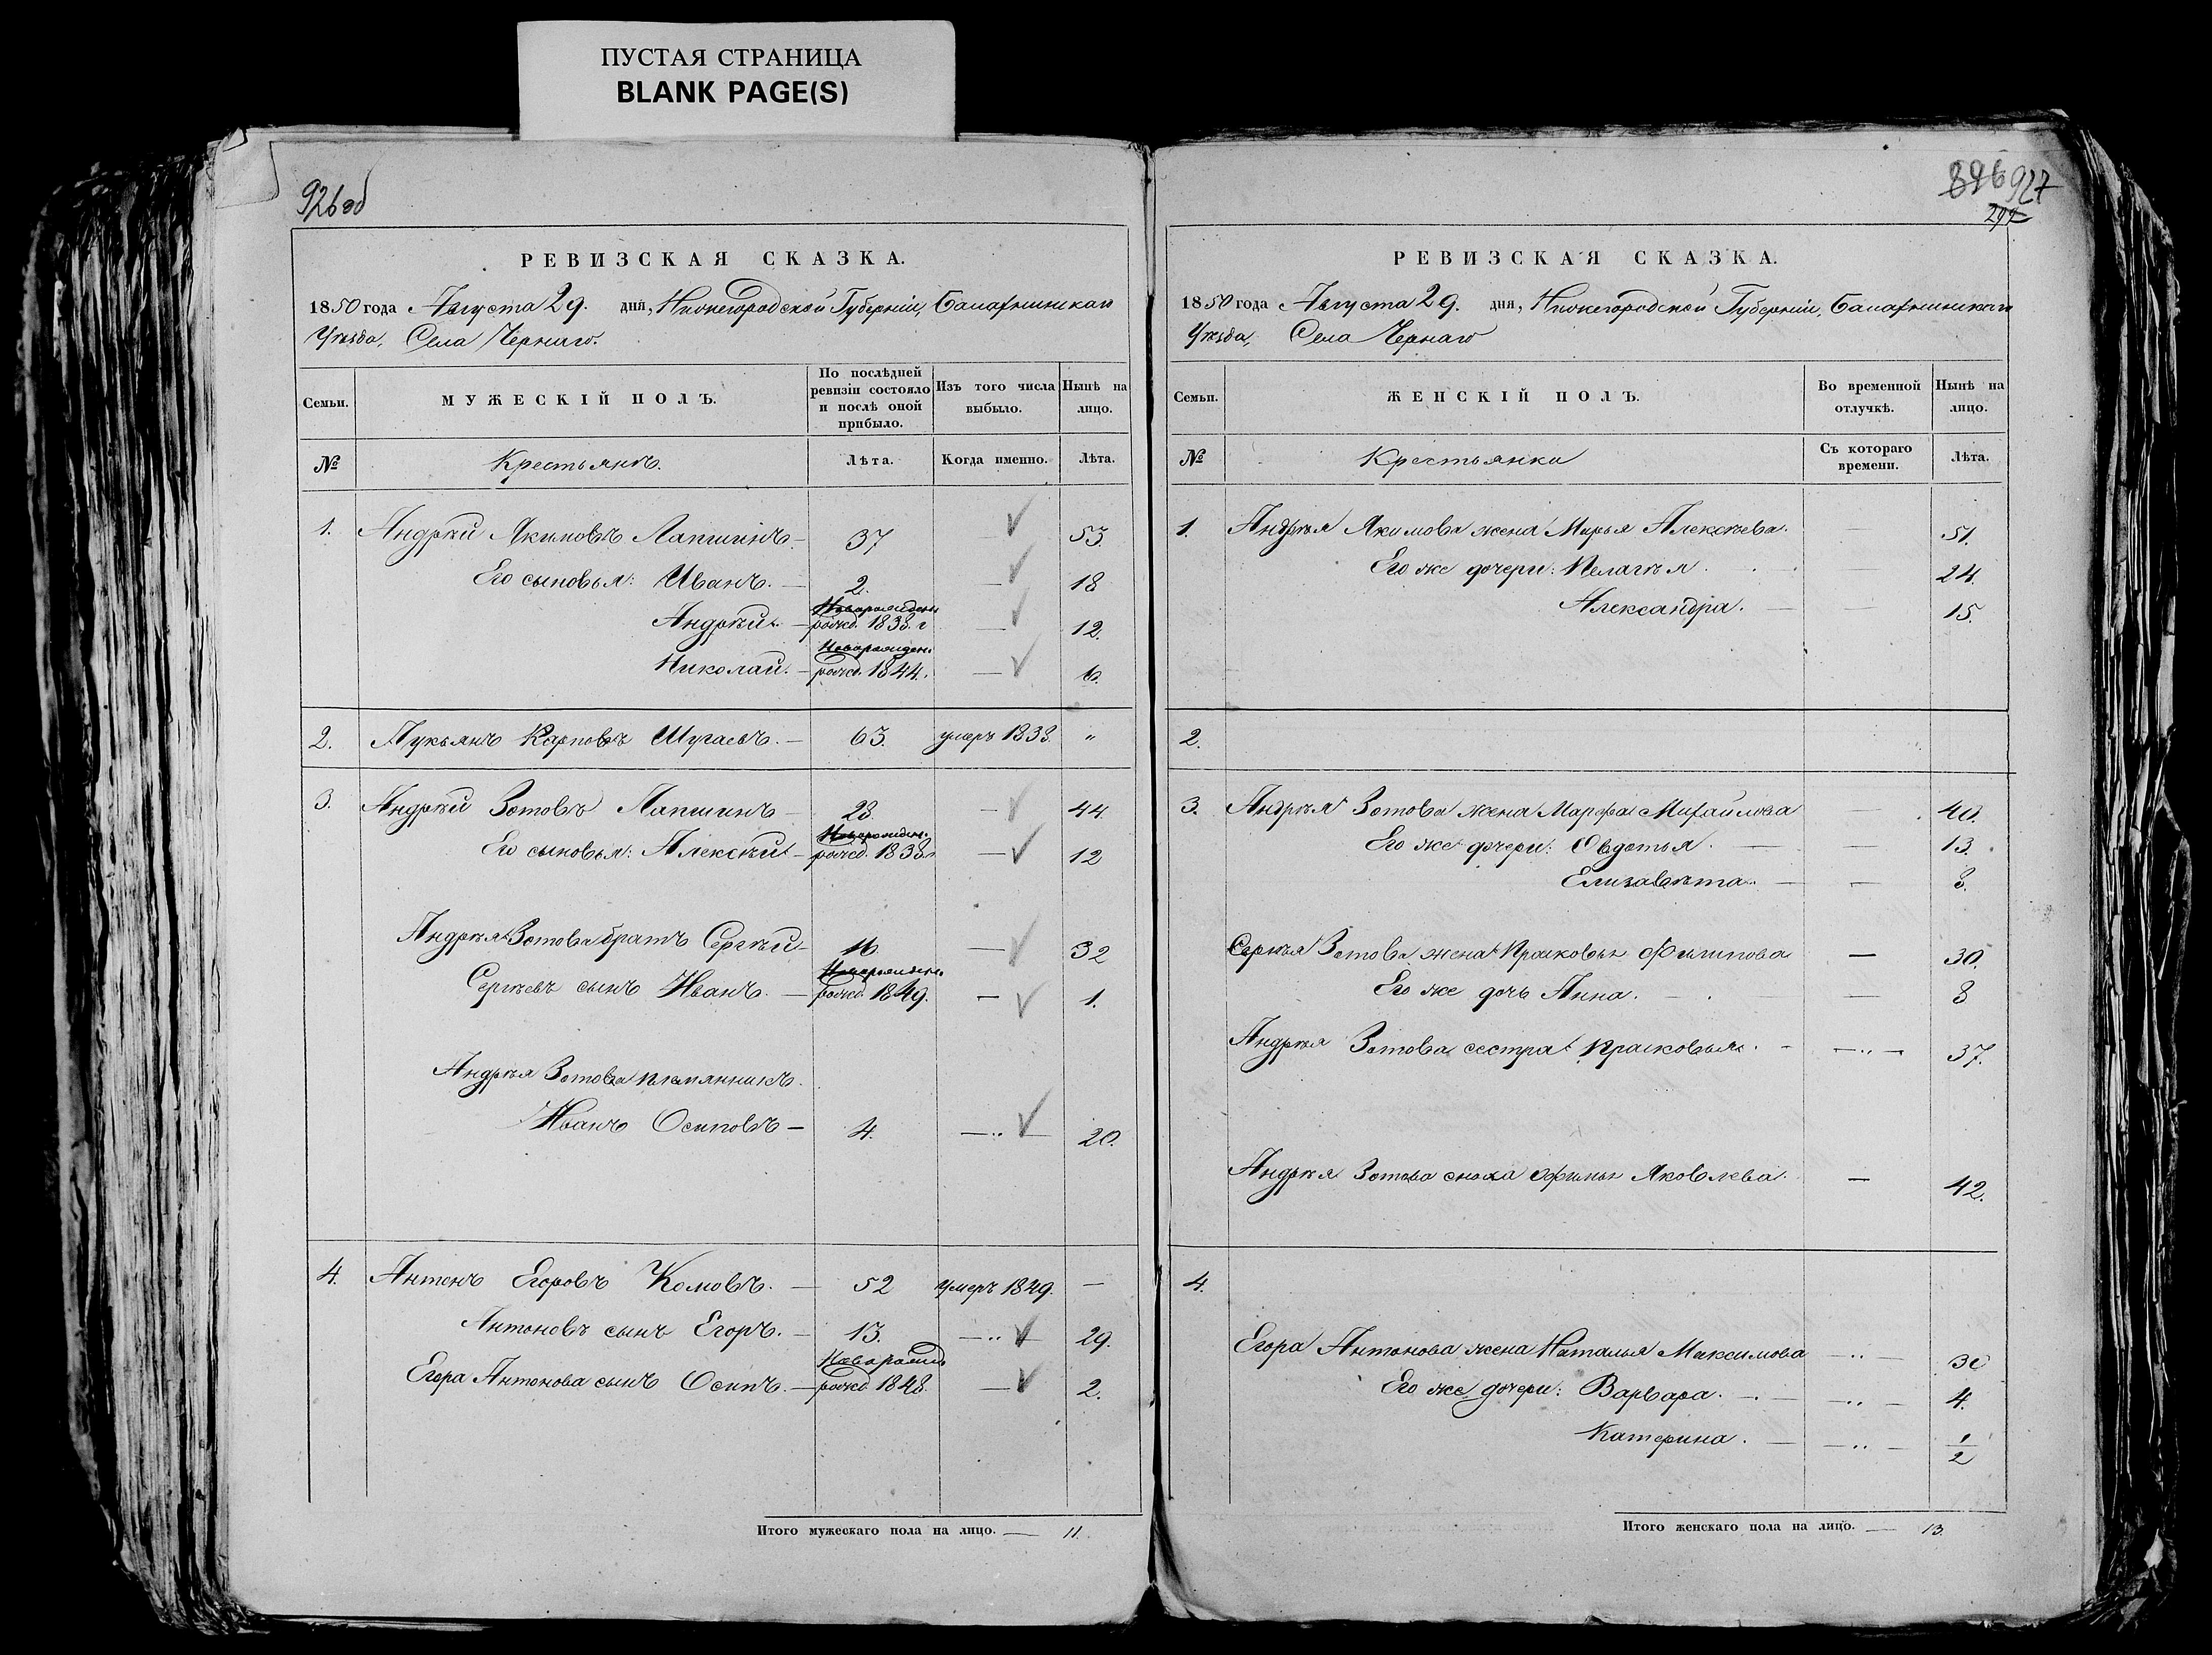 ПУСТАЯ СТРАНИЦА
BLANK PAGE(S)
926 об
РЕВИЗСКАЯ СКАЗКА.
1850 года Августа 29. дня, Нижегородской Губерніи, Балахнинскаго
Уѣзда, Села Чернаго.
Семьи. МУЖЕСКІЙ ПОЛЪ. По послѣдней ревизіи состояло и послѣ оной прибыло. Изъ того числа выбыло. Нынѣ на лицо.
№ Крестьянъ. Лѣта. Когда именно. Лѣта.
1. Андрѣй Якимовъ Лапшинъ 37 53.
Его сыновья: Иванъ. 2. 18
Новорожден.
Андрѣй. рожд. 1838. г 12.
Новорожден.
Николай. рожд. 1844. 6.
2. Лукьянъ Карповъ Шугаевъ. 63. умеръ 1838. "
3. Андрѣй Зотовъ Лапшинъ 28. 44.
Новорожден.
Его сыновья: Алексѣй рожд. 1838 12
Андрѣя Зотова братъ Сергѣй 16. 32
Новорожден.
Сергѣевъ сынъ Иванъ. рожд. 1849. 1.
Андрѣя Зотова племянникъ.
Иванъ Осиповъ 4. 20.
4. Антонъ Егоровъ Комовъ. 52 умеръ 1849. —
Антоновъ сынъ Егоръ. 13. 29.
Новорожд
Егора Антонова сынъ Осипъ. рожд 1848. 2.
Итого мужескаго пола на лицо. — 11.
896 927
297
РЕВИЗСКАЯ СКАЗКА.
1850 года Августа 29. дня, Нижегородской Губерніи, Балахнинскаго
Уѣзда, Села Чернаго
Семьи. ЖЕНСКІЙ ПОЛЪ. Во временной отлучкѣ. Нынѣ на лицо.
№ Крестьянка Съ котораго времени. Лѣта.
1. Андрѣя Якимова жена Марья Алексѣева. 51.
Его же дочери: Пелагѣя 24.
Александра. 15.
2.
3. Андрѣя Зотова жена Марфа Михайлова 40.
Его же дочери: Овдотья. 13.
Елизавѣта. 8.
Сергѣя Зотова жена Прасковья Филиппова 30.
Его же дочь Анна. 8
Андрѣя Зотова сестра Прасковья. 37.
Андрѣя Зотова сноха Офимья Яковлева. 42.
4.
Егора Антонова жена Наталья Максимова 30
Его же дочери: Варвара. 4.
Катерина. 1/2
Итого женскаго пола на лицо. — 13.